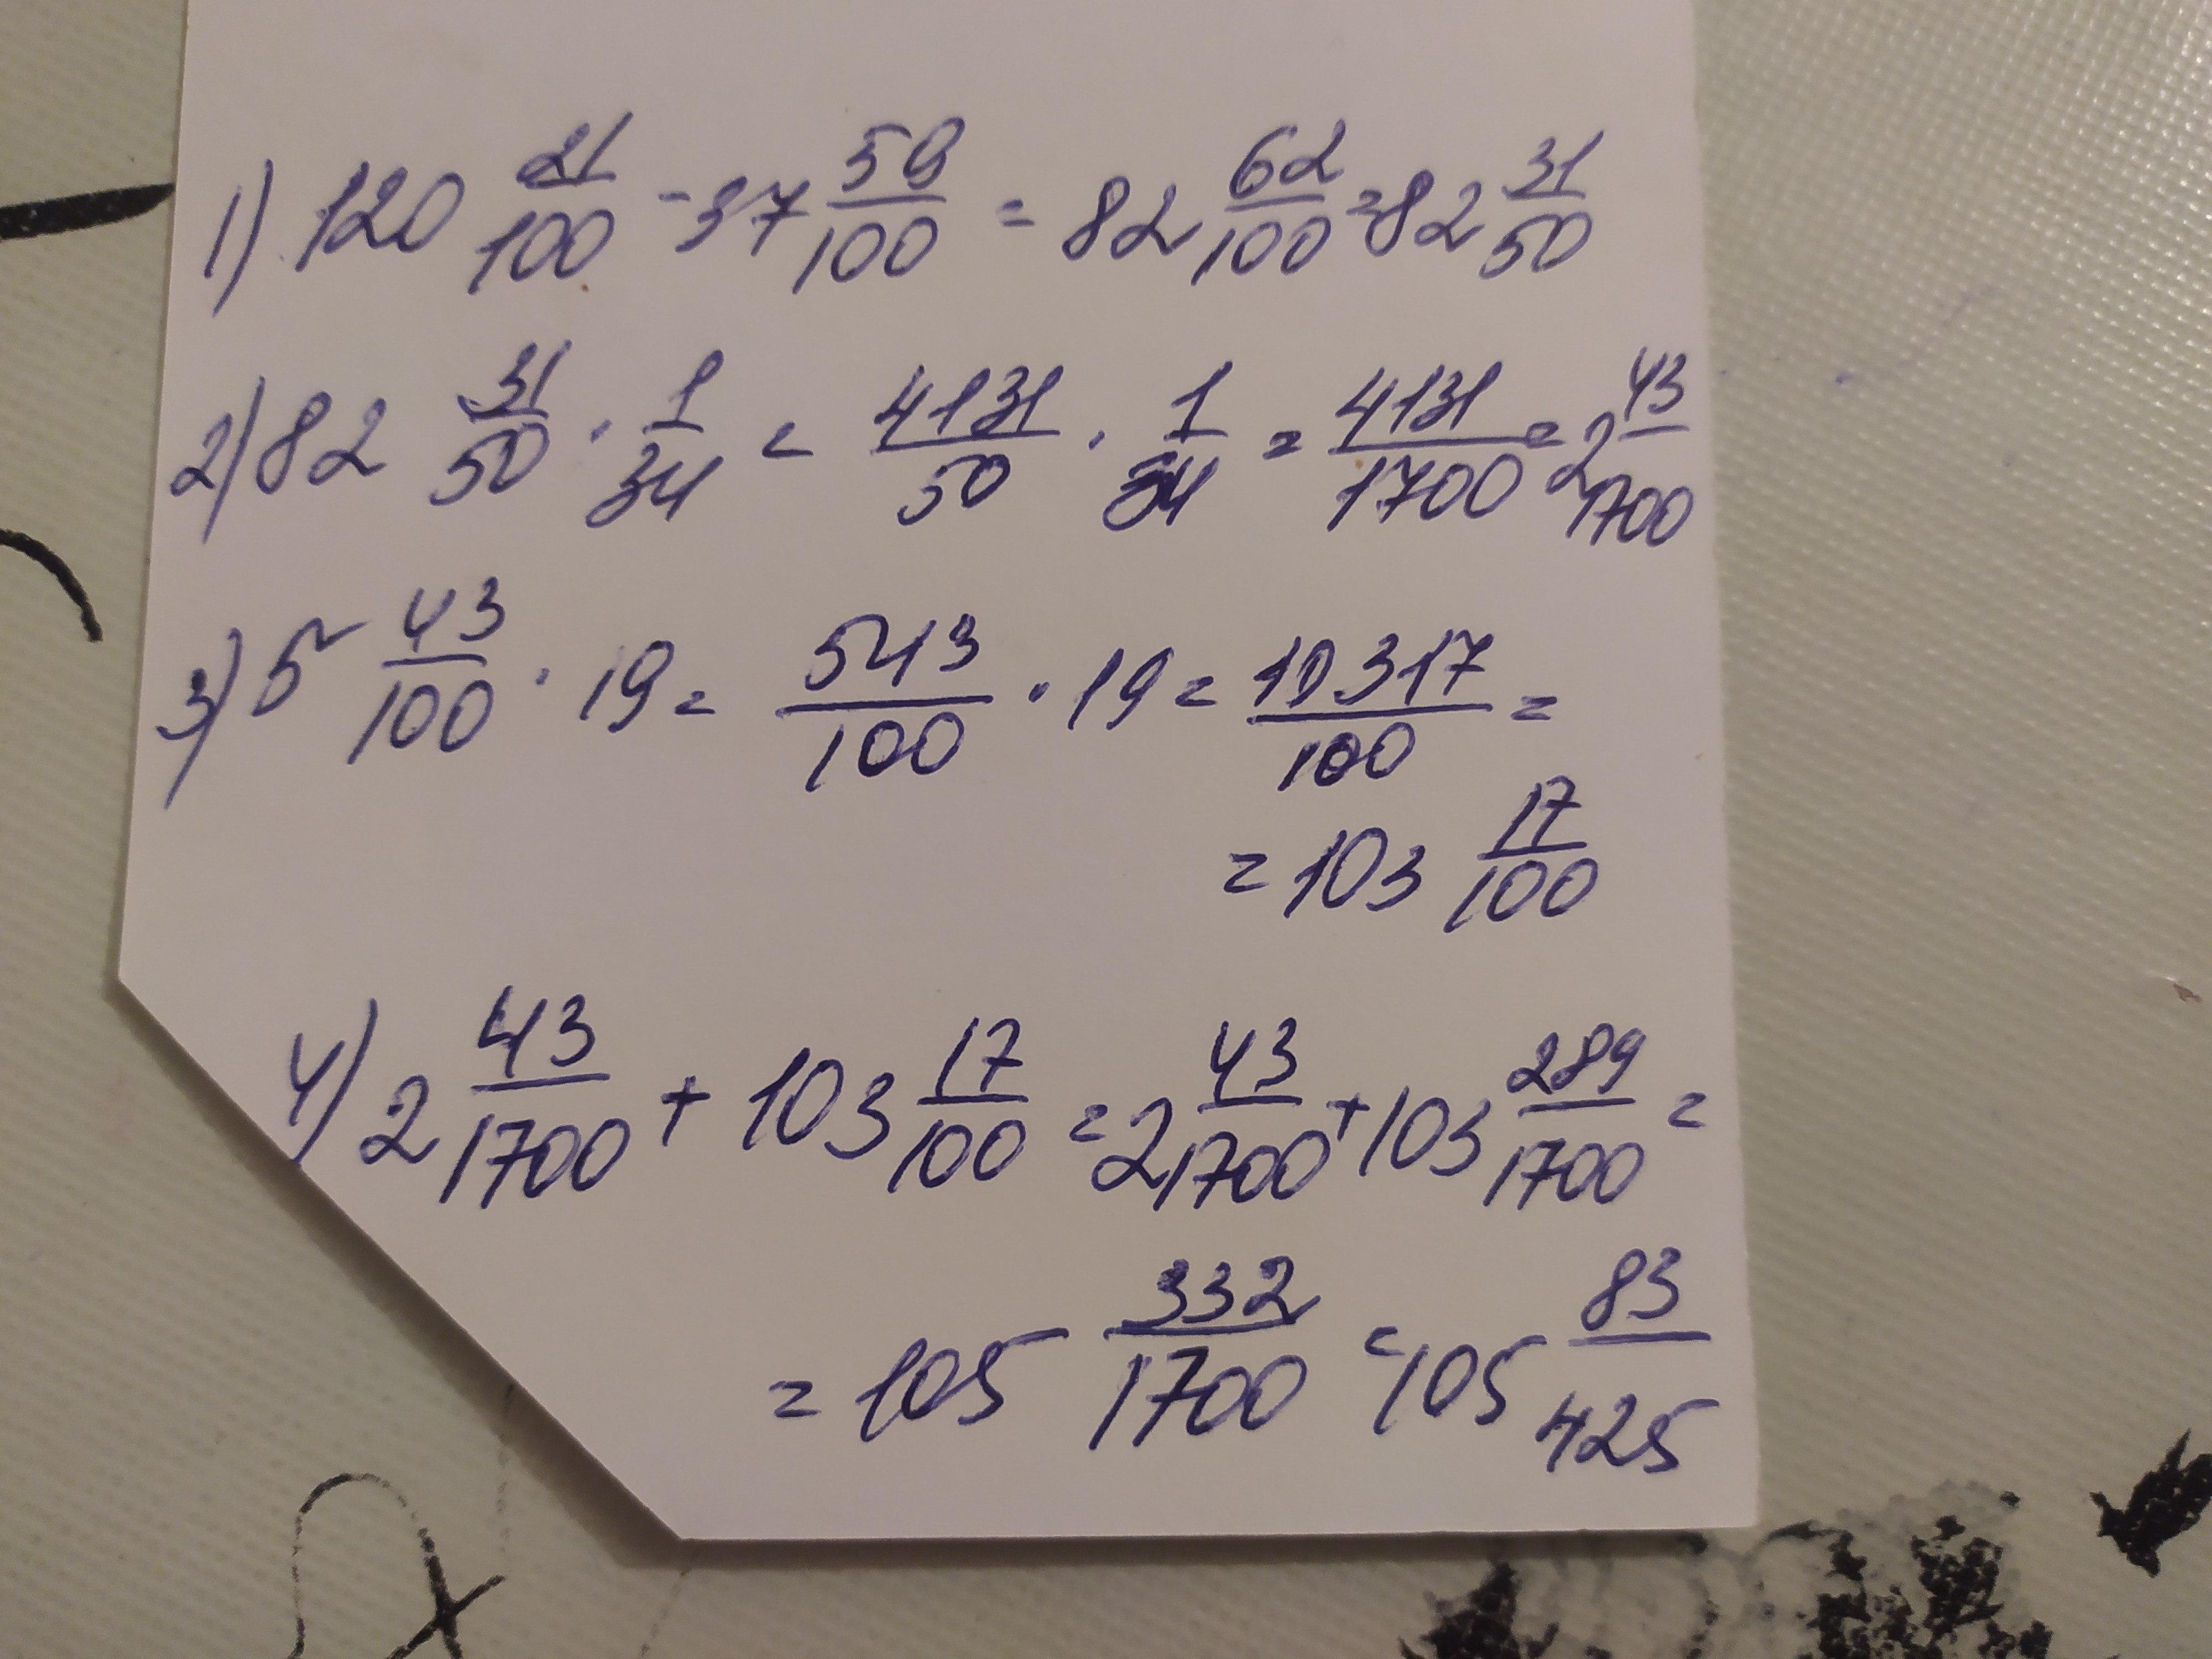 1) 120 21/100 - 37 59/100 = 82 62/100 = 82 31/50
2) 82 31/50 · 1/34 = 4131/50 · 1/34 = 4131/1700 = 2 43/1700
3) 5 43/100 · 19 = 543/100 · 19 = 10317/100 =
= 103 17/100
4) 2 43/1700 + 103 17/100 = 2 43/1700 + 103 289/1700 =
= 105 332/1700 = 105 83/425